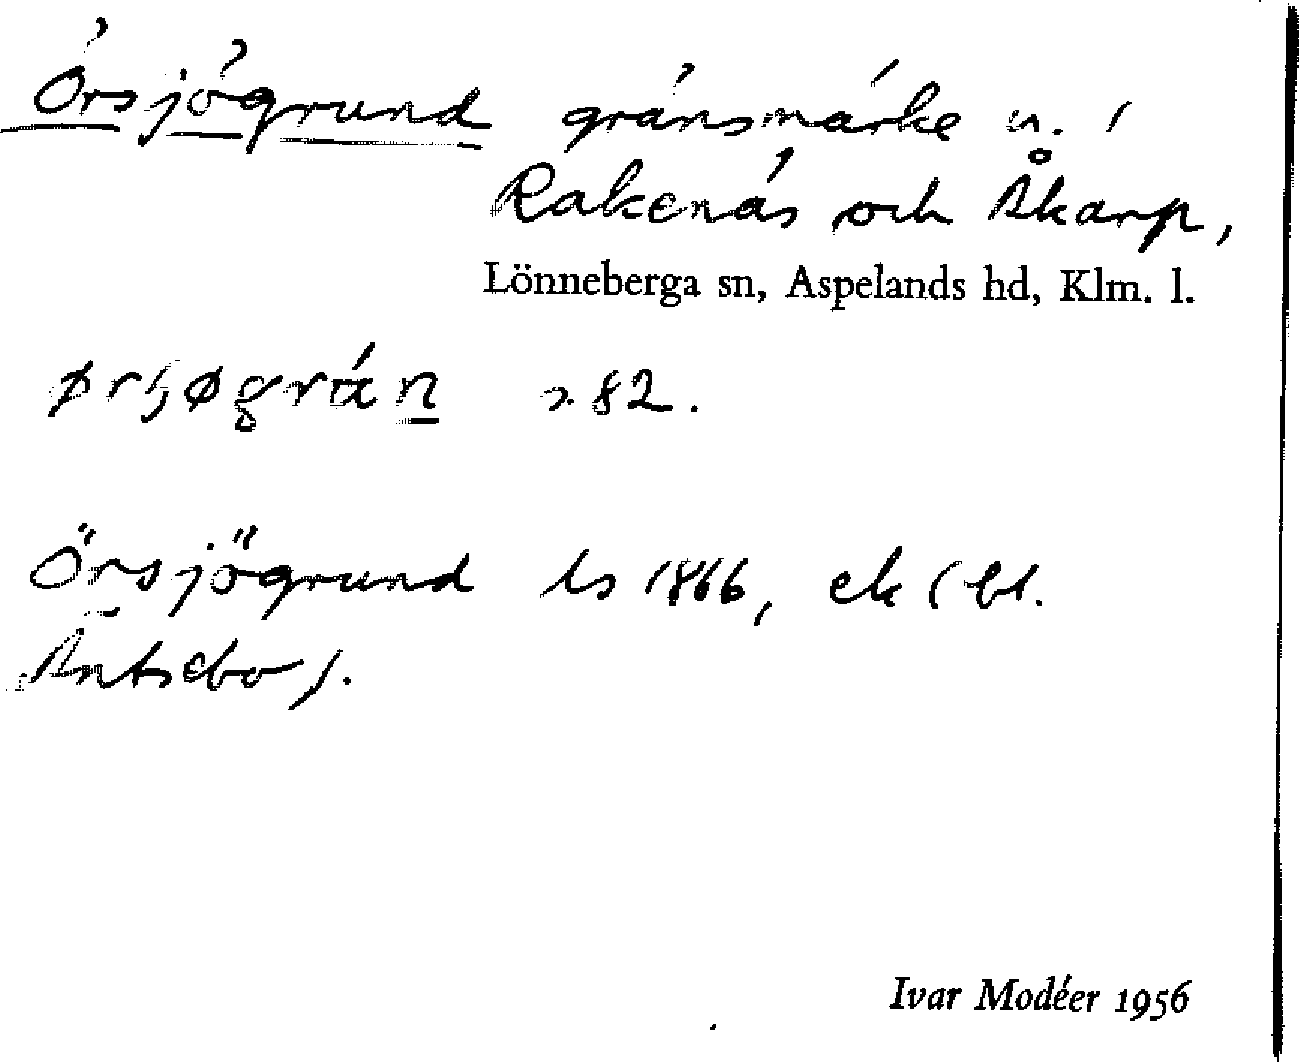 Örsjögrund gränsmärke n. i
Rakenäs och Åkarp,
Lönneberga sn, Aspelands hd, Klm. l.
82.
Örsjögrund ls 1866, ek (bl.
Äntsebo).
Ivar Modéer 1956